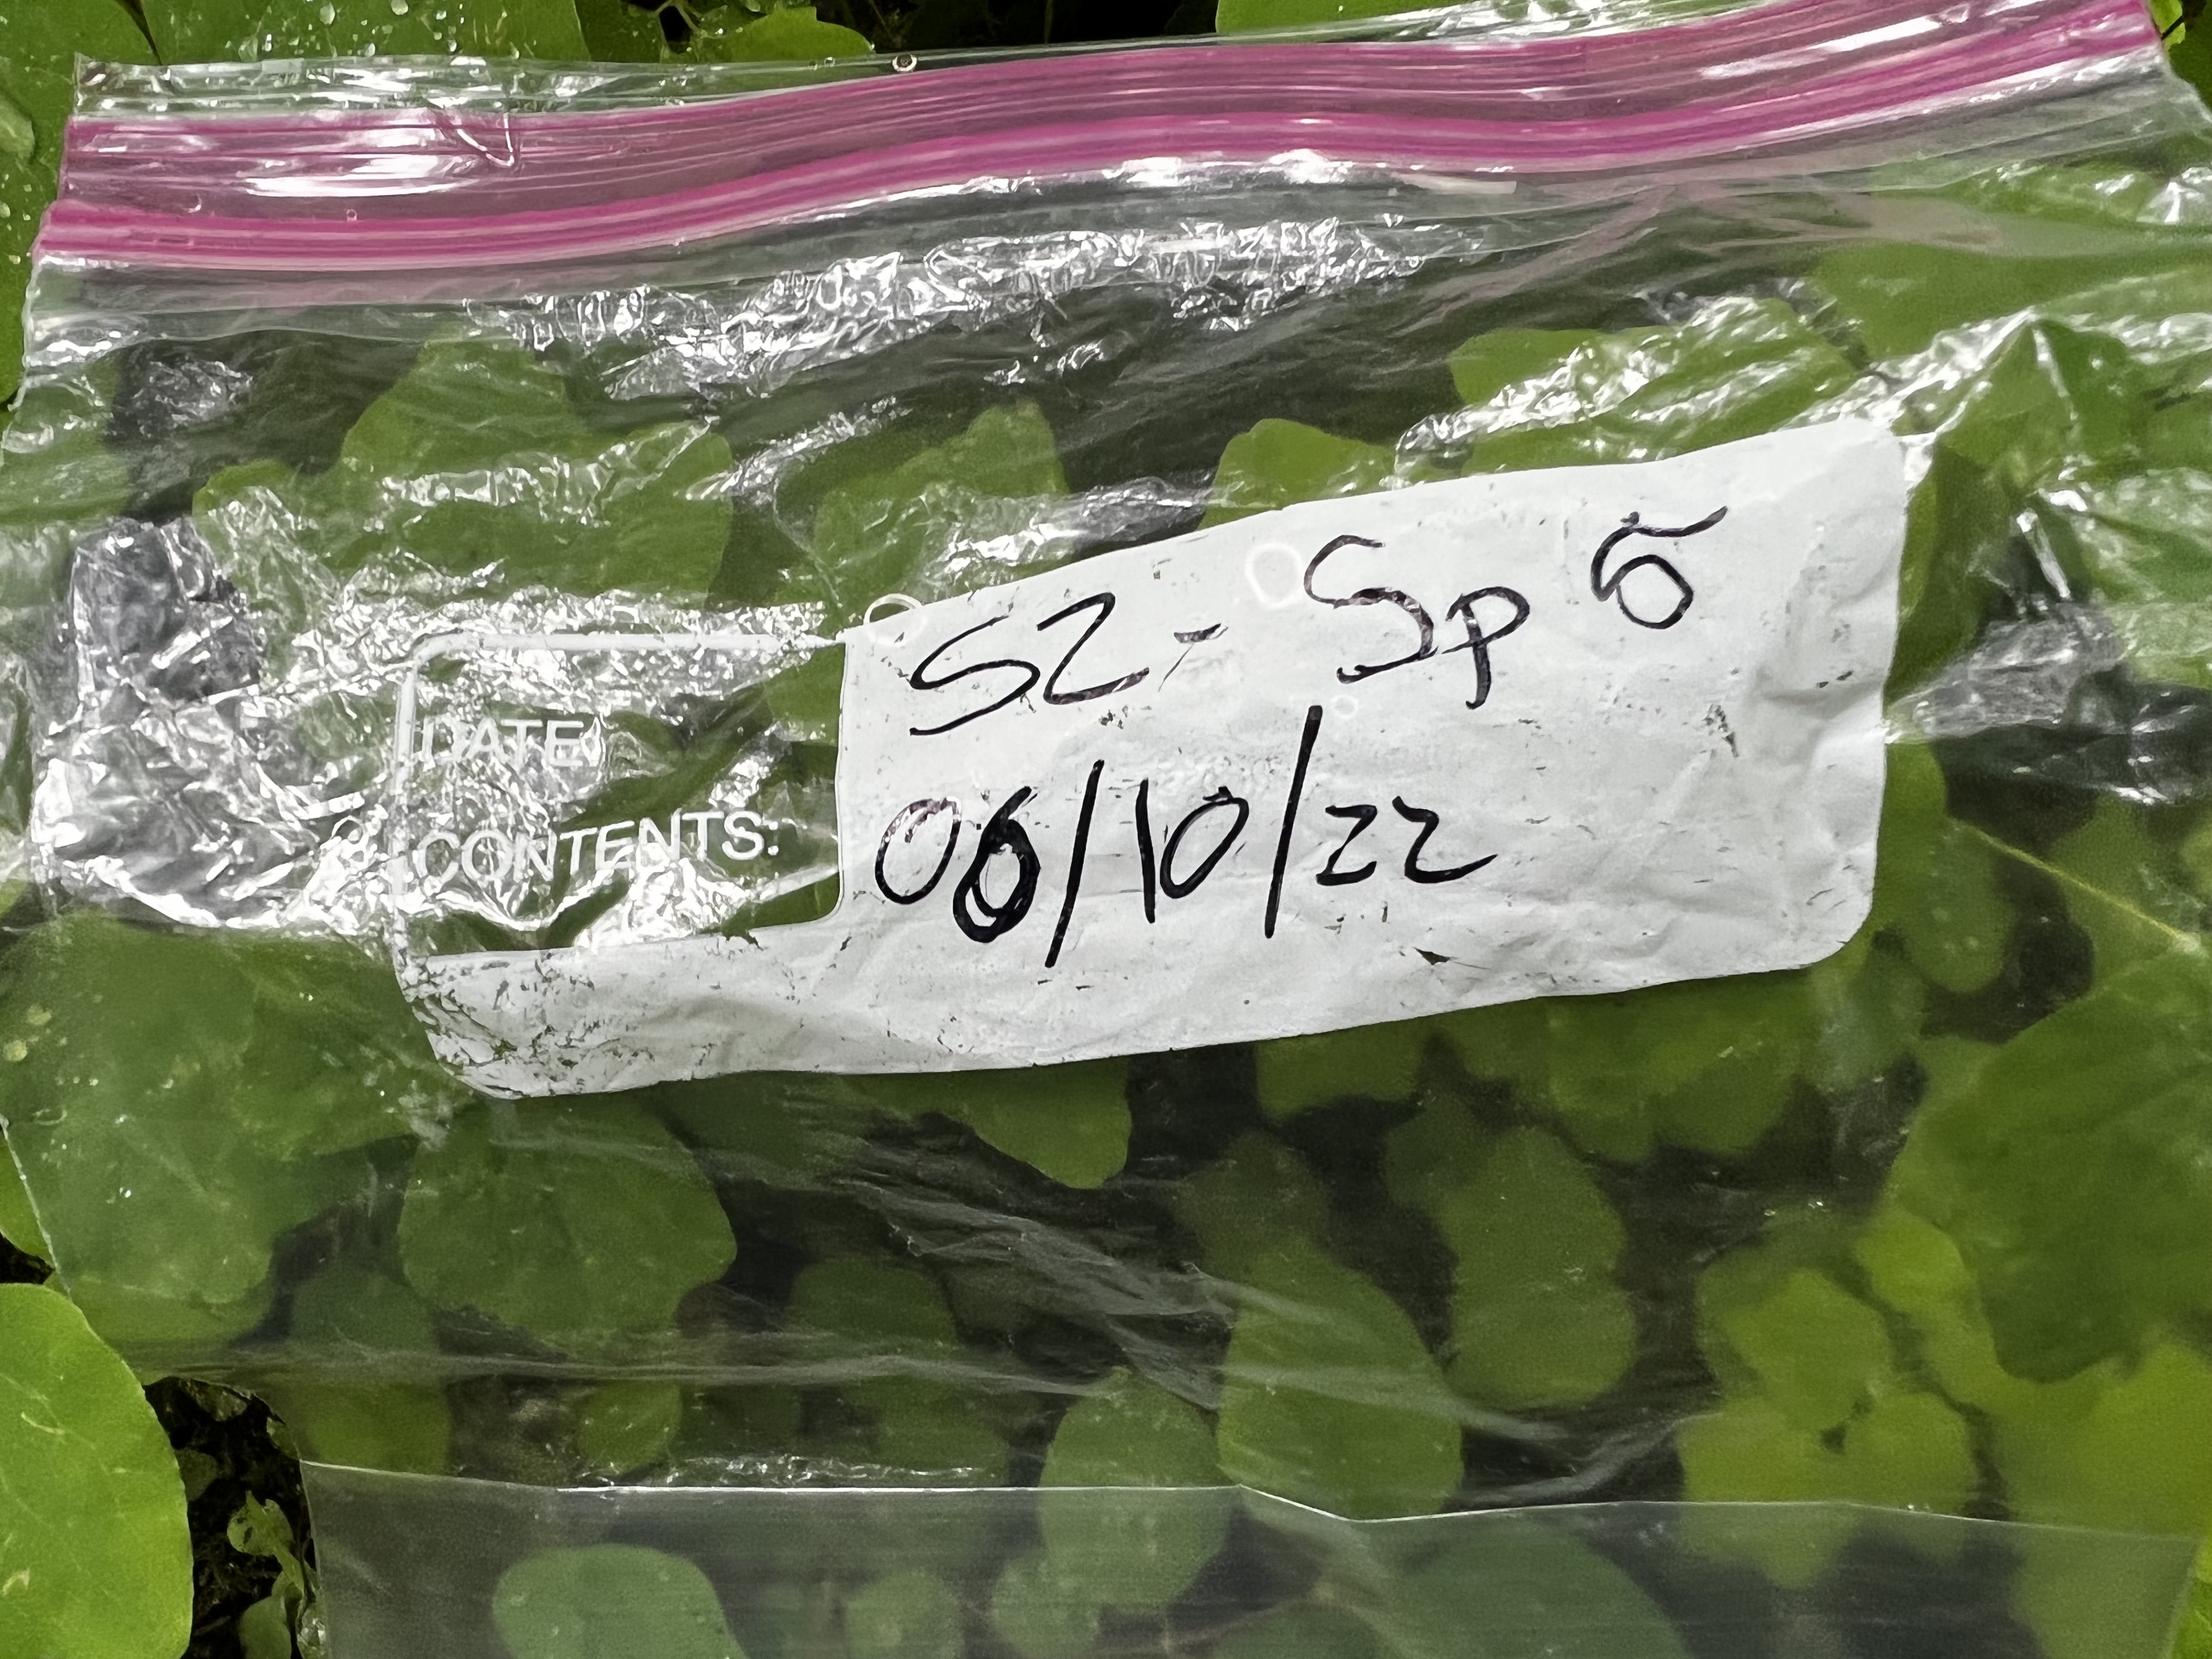 DATE
CONTENTS:
S2 - SP 6
06/10/22